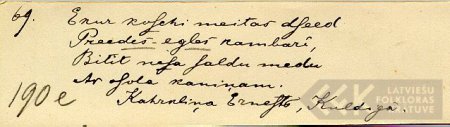 69. Ekur koschi meitas dseed
Preedes - egles kambarī,
Bitīt nesa saldu medu
Ar osola kaniņam.
190 e Kahrkliņa Ernests, Kuldīgā.
LATVIEŠU
FOLKLORAS
KRĀTUVE